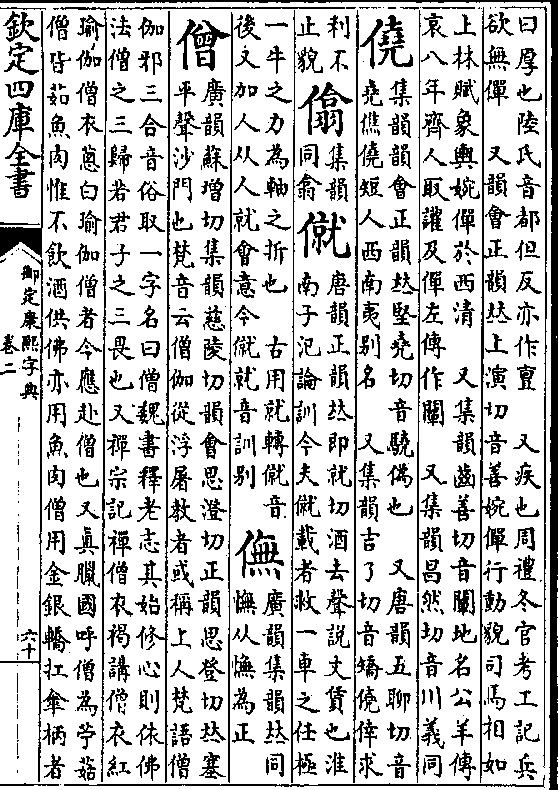 曰厚也陸氏音都但反亦作亶　又疾也周禮冬官考工記兵
欲無僤　又韻會正韻𠀤上演切音善婉僤行動貌司馬相如
上林賦象輿婉僤於西清　又集韻齒善切音闡地名公羊傳
哀八年齊人取讙及僤左傳作闡　又集韻昌然切音川義同
僥
集韻韻會正韻𠀤堅堯切音驍僞也　又唐韻五聊切音
堯僬僥短人西南夷别名　又集韻吉了切音矯僥倖求
利不
止貌
㒆
集韻
同翕
僦
唐韻正韻𠀤即就切酒去聲説文賃也淮
南子氾論訓今夫僦載者救一車之任極
一牛之力為軸之折也　古用就轉僦音
後又加人从人就會意今僦就音訓别
㒇
廣韻集韻𠀤同
憮从憮為正
僧
廣韻蘇增切集韻慈陵切韻會思澄切正韻思登切𠀤塞
平聲沙門也梵音云僧伽從浮屠教者或稱上人梵語僧
伽邪三合音俗取一字名曰僧魏書釋老志其始修心則依佛
法僧之三歸若君子之三畏也又禪宗記禪僧衣褐講僧衣紅
瑜伽僧衣蔥白瑜伽僧者今應赴僧也又真臘國呼僧為苧菇
僧皆茹魚肉惟不飲酒供佛亦用魚肉僧用金銀轎扛傘柄者
欽定四庫全書
御定康熙字典
卷二
六十